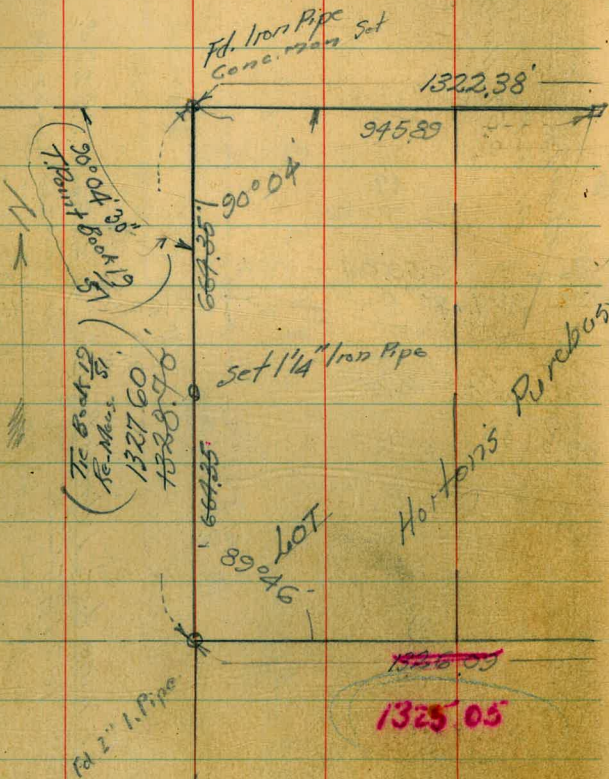 Fd. Iron Pipe
Conc. mon Set
1322.38'
945.89
90° 04' 30"
Tie Book 19
51
90° 04'
664.35'
N
Set 1 1/4" Iron Pipe
Tie Book 19
51
Re-Meas.
1327.60
1328.70
664.35
Horton's
LOT
89° 46'
1326.09
1325.05
Fd. 2" I. Pipe